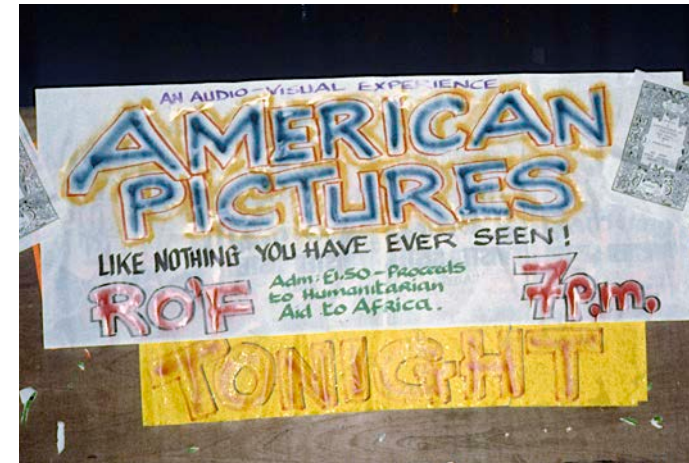 AN AUDIO-VISUAL EXPERIENCE
AMERICAN
PICTURES
LIKE NOTHING YOU HAVE EVER SEEN!
RO'F
Adm: £1.50 - Proceeds
to Humanitarian
Aid to Africa.
7p.m.
TONIGHT